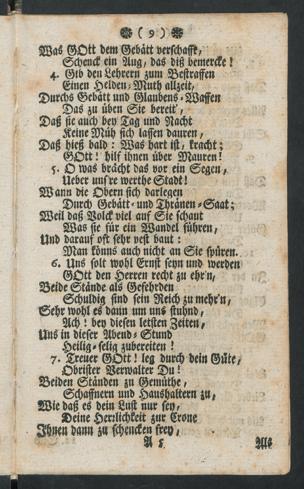 ( 9 )
Was GOtt dem Gebätt verschafft,
Schenck ein Aug, das diß bemercke!
4. Gib den Lehrern zum Bestraffen
Einen Helden-Muth allzeit,
Durchs Gebätt und Glaubens-Waffen
Das zu üben Sie bereit,
Daß sie auch bey Tag und Nacht
Keine Müh sich lassen dauren,
Daß hieß bald: Was hart ist, kracht;
GOtt! hilf ihnen über Mauren!
5. O was brächt das vor ein Segen,
Ueber uns're werthe Stadt!
Wann die Obern sich darlegen
Durch Gebätt- und Thränen-Saat;
Weil daß Volck viel auf Sie schaut
Was sie für ein Wandel führen,
Und darauf oft sehr vest baut:
Man könns auch nicht an Sie spüren.
6. Uns solt wohl Ernst seyn und werden
GOtt den Herren recht zu ehr'n,
Beide Stände als Gefehrden
Schuldig sind sein Reich zu mehr'n,
Sehr wohl es dann um uns stuhnd,
Ach! bey diesen letsten Zeiten,
Uns in dieser Abend-Stund
Heilig-selig zubereiten!
7. Treuer GOtt! leg durch dein Güte,
Obrister Verwalter Du!
Beiden Ständen zu Gemüthe,
Schaffnern und Haushaltern zu,
Wie daß es dein Lust nur sey,
Deine Herrlichkeit zur Crone
Ihnen dann zu schencken frey,
A 5 Alle